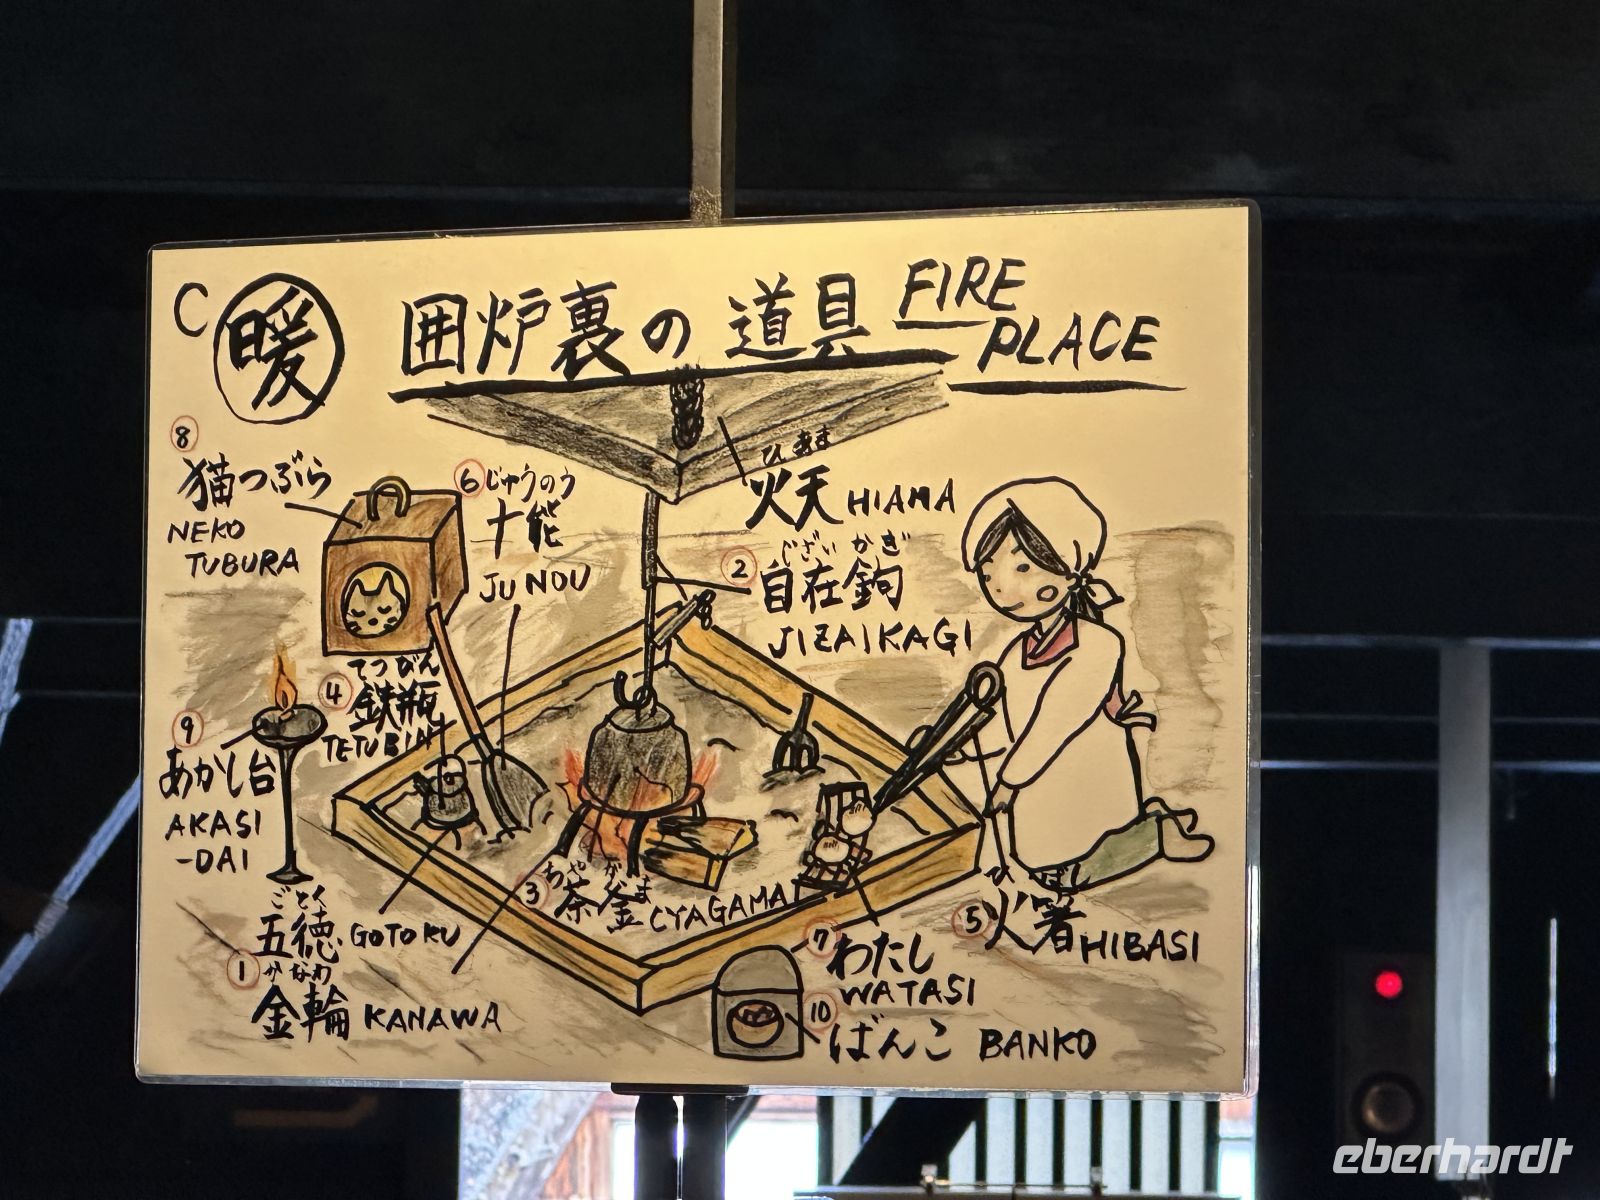 C 暖 囲炉裏の道具 FIRE
PLACE
ひあま
火天 HIAMA
⑧
猫つぶら
NEKO
TUBURA
⑥ じゅうのう
十能
JUNOU
② じざいかぎ
自在鉤
JIZAIKAGI
てつびん
④ 鉄瓶
TETUBIN
⑨
あかし台
AKASI
-DAI
ごとく
五徳 GOTOKU
① かなわ
金輪 KANAWA
ちゃがま
③ 茶釜 CYAGAMA
ひばし
⑤ 火箸 HIBASI
⑦ わたし
WATASI
⑩ ばんこ BANKO
eberhardt